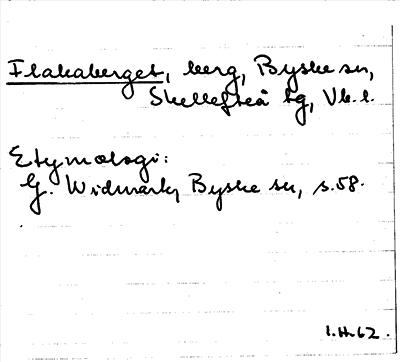 Flakaberget, berg, Byske sn,
Skellefteå tg, Vb. l.
Etymologi:
G. Widmark, Byske sn, s. 58.